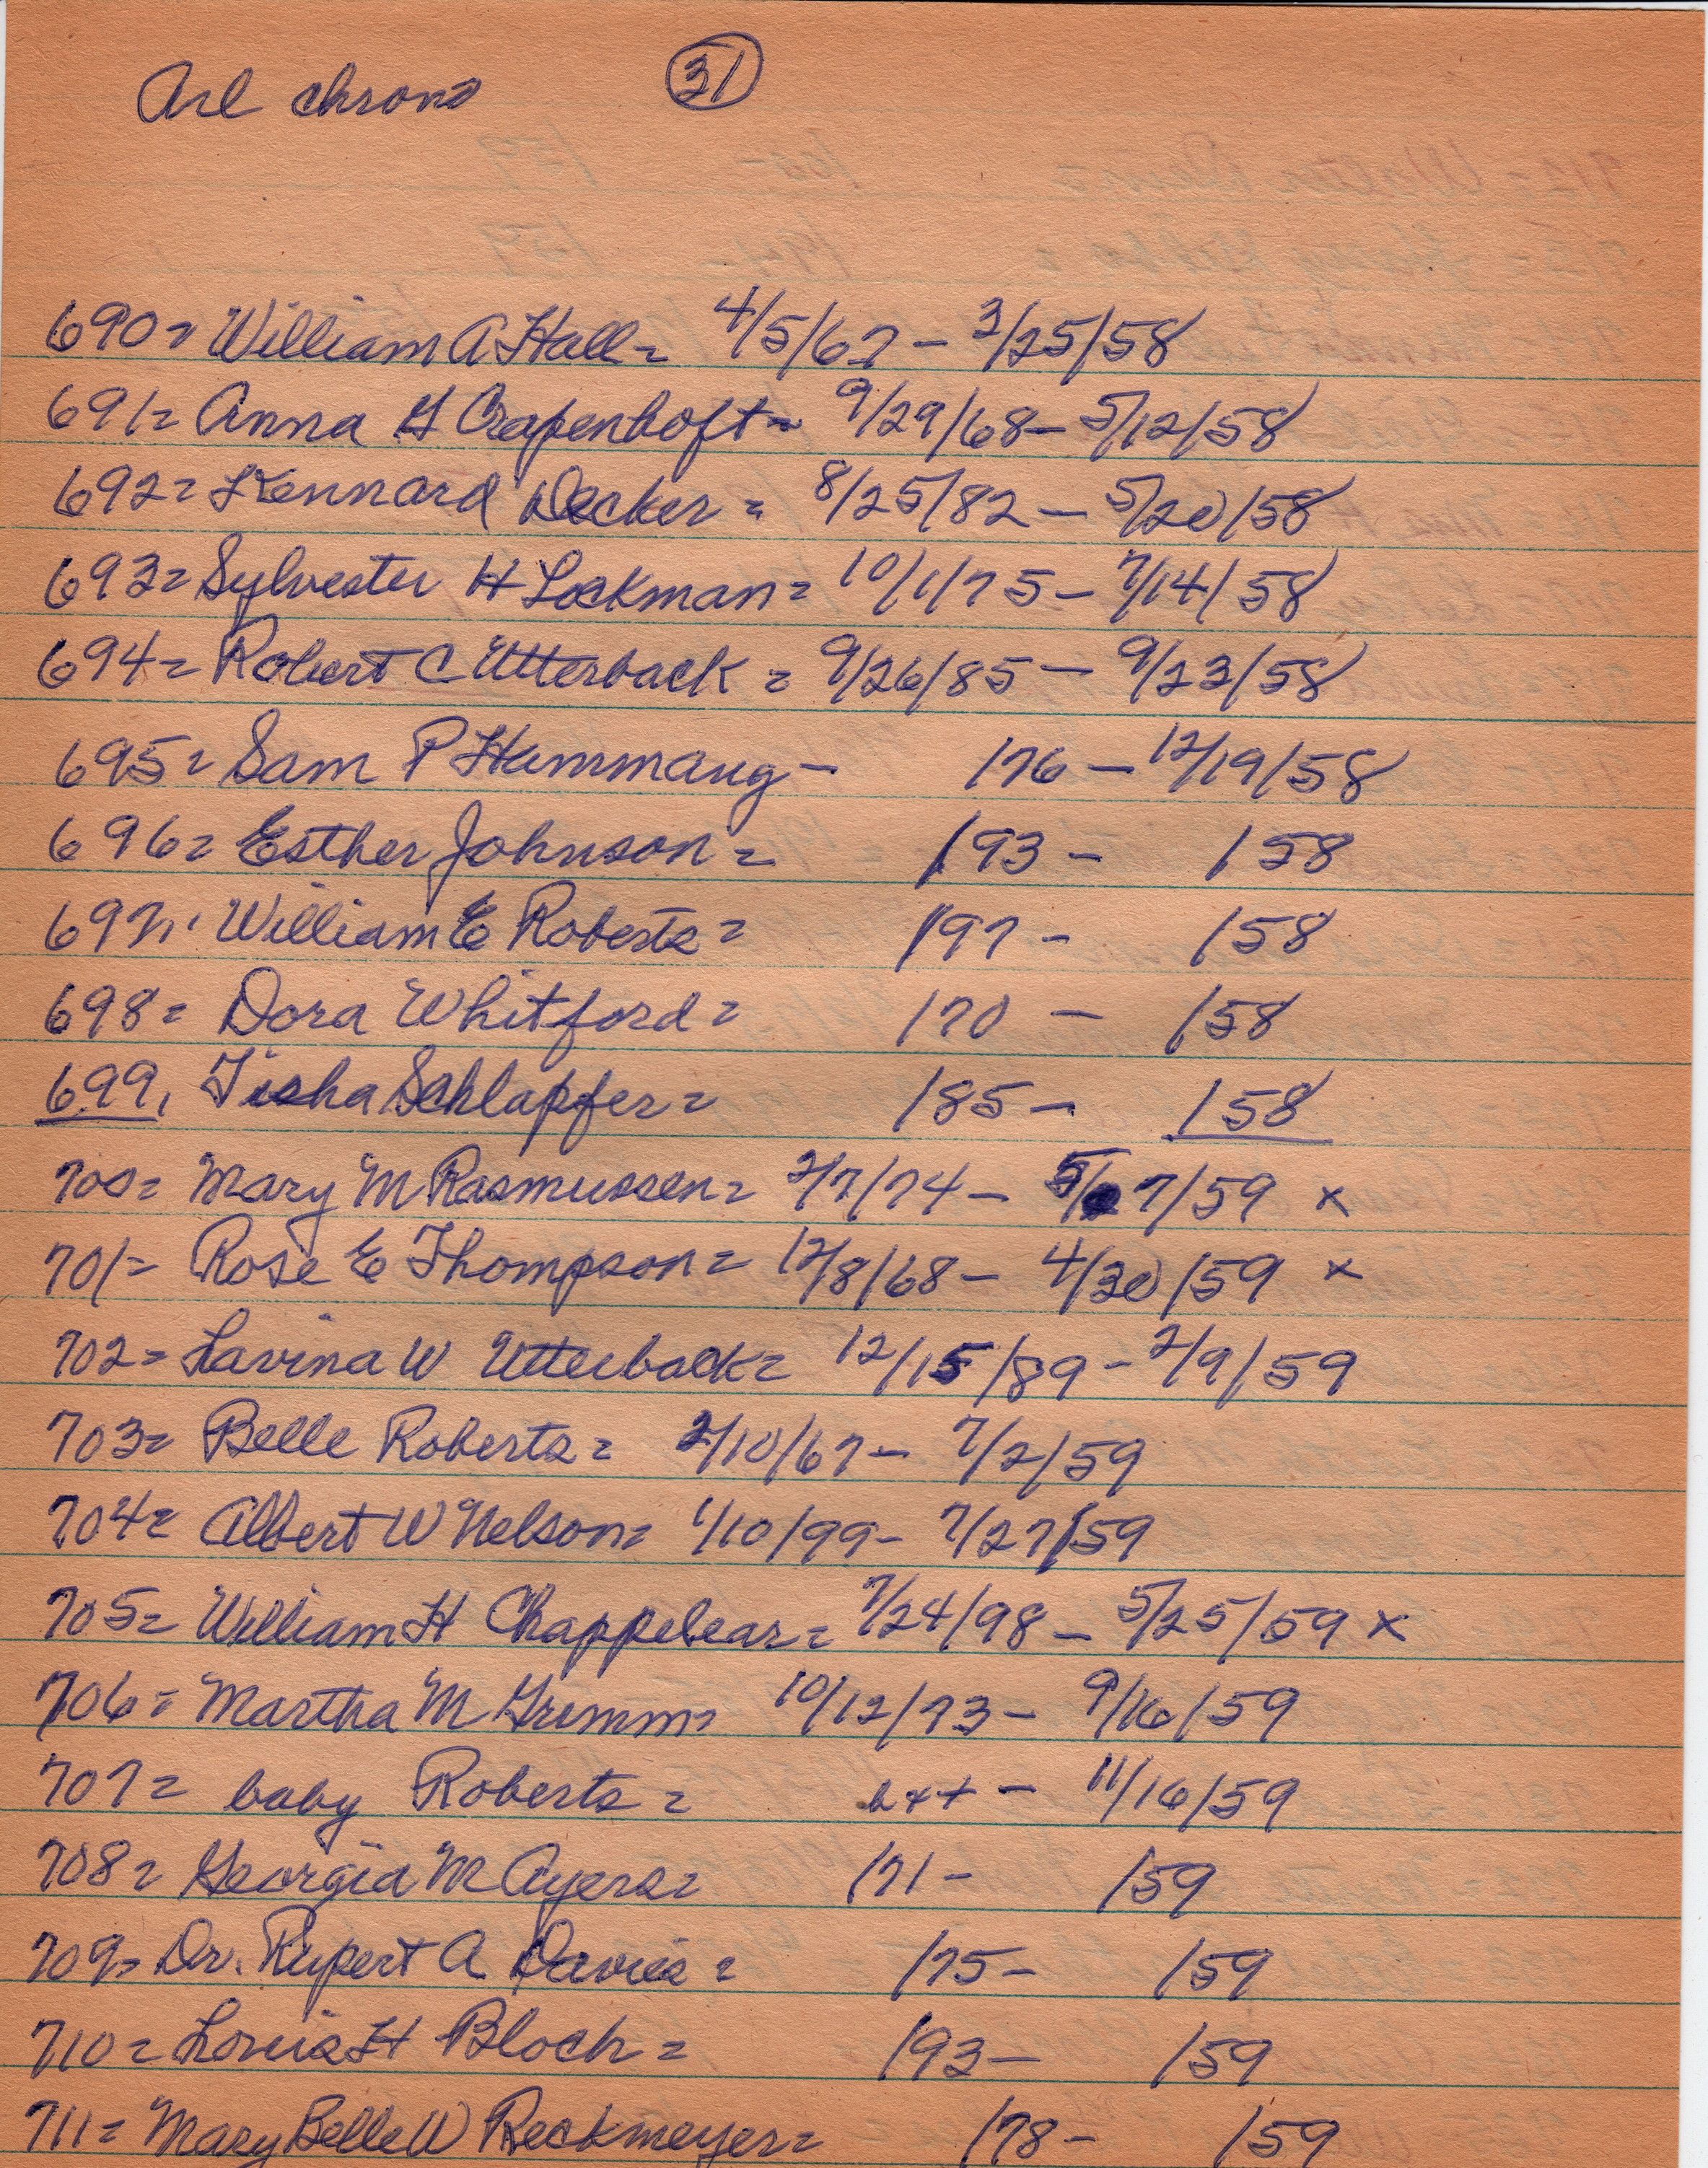 Arl chrono 31
690= William A Hall= 4/5/67 - 3/25/58
691= Anna G Crapenhoft= 9/29/68 - 5/12/58
692= Kennard Decker = 8/25/82 - 5/20/58
693= Sylvester H Lockman= 10/1/75 - 7/14/58
694= Robert C Utterback = 9/26/85 - 9/23/58
695= Sam P Hammang - /76 - 12/19/58
696= Esther Johnson = /93 - /58
697= William E Roberts = /97 - /58
698= Dora Whitford = /70 - /58
699, Tisha Schlapfer = /85 - /58
700= Mary M Rasmussen= 2/7/74 - 5/7/59 x
701= Rose E Thompson= 12/8/68 - 4/30/59 x
702= Lavina W Utterback= 12/15/89 - 2/9/59
703= Belle Roberts = 2/10/67 - 7/2/59
704= Albert W Nelson= 1/10/99 - 7/27/59
705= William H Chappelear= 7/24/98 - 5/25/59 x
706= Martha M Grimm= 10/12/73 - 9/16/59
707= baby Roberts = - 11/16/59
708= Georgia M Ayers= /71 - /59
709= Dr. Rupert A Davies = /75 - /59
710= Louis H Bloch = /93 - /59
711= Mary Belle W Reckmeyer= /78 - /59